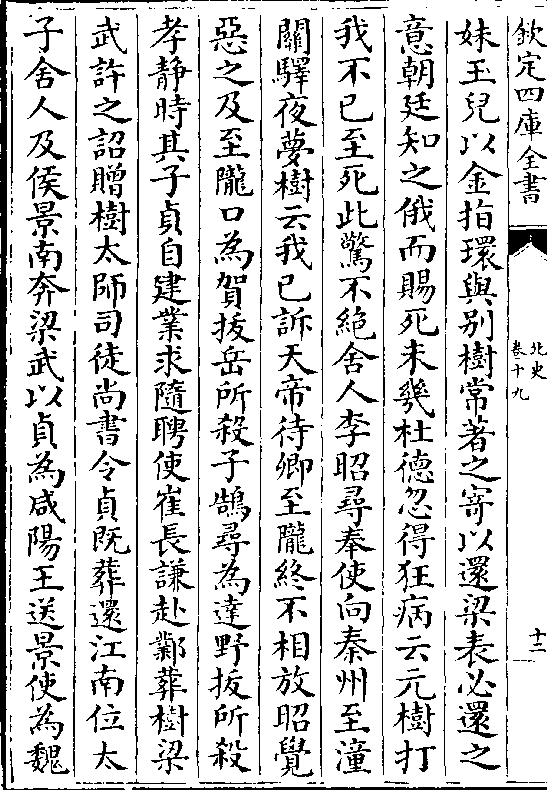 欽定四庫全書
北史
卷十九
十二
妹玉兒以金指環與别樹常著之寄以還梁表必還之
意朝廷知之俄而賜死未幾杜德忽得狂病云元樹打
我不已至死此驚不絶舍人李昭尋奉使向秦州至潼
關驛夜夢樹云我已訴天帝待卿至隴終不相放昭覺
惡之及至隴口為賀拔岳所殺子鵠尋為達野拔所殺
孝静時其子貞自建業求隨聘使崔長謙赴鄴葬樹梁
武許之詔贈樹太師司徒尚書令貞既葬還江南位太
子舍人及侯景南奔梁武以貞為咸陽王送景使為魏